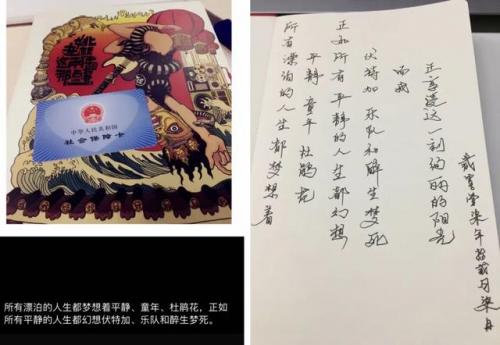 中华人民共和国
社会保障卡
所有漂泊的人生都梦想着平静、童年、杜鹃花，正如
所有平静的人生都幻想伏特加、乐队和醉生梦死。
所有漂泊的人生都梦想着
平静 童年 杜鹃花
正如所有平静的人生都幻想
伏特加 乐队和醉生梦死
而我
正享 这一 绚丽的阳光